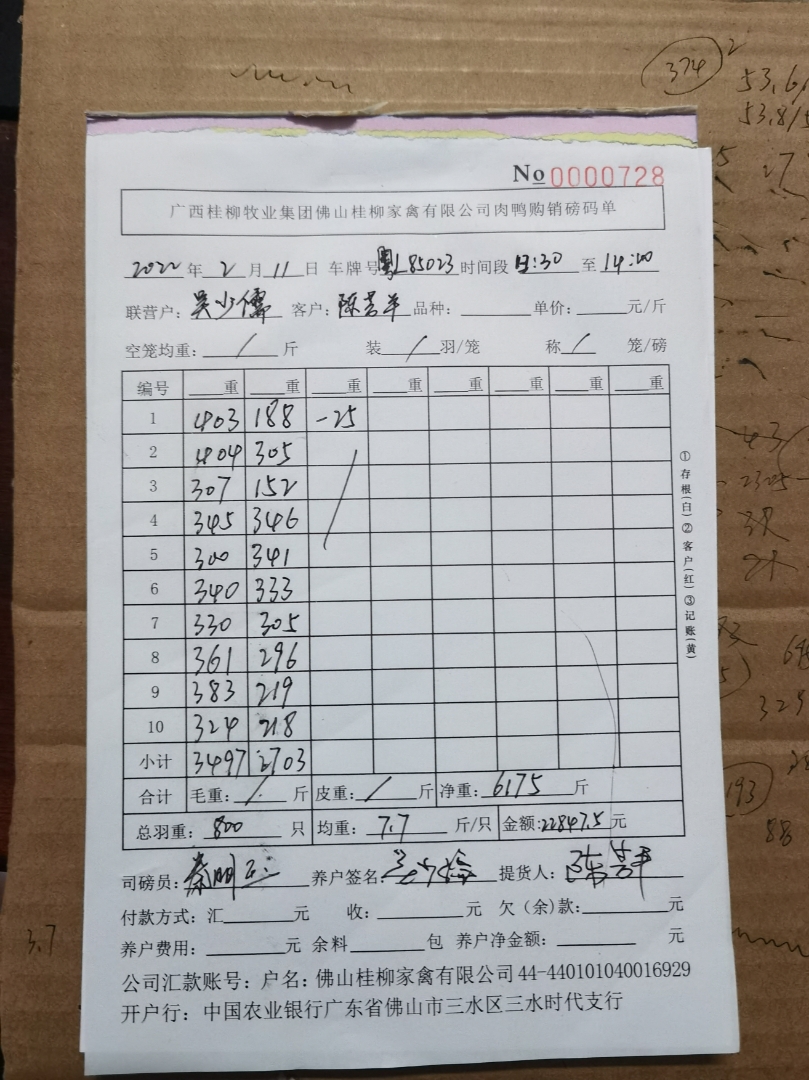 374 2
53.6
53.8/5
No 0000728
广西桂柳牧业集团佛山桂柳家禽有限公司肉鸭购销磅码单
2022年2月11日 车牌号粤L85023时间段 13:30 至 14:00
联营户:吴少儒 客户:陈芸平 品种: 单价: 元/斤
空笼均重:/斤 装/羽/笼 称/笼/磅
编号 重 重 重 重 重 重 重 重
1 403 188 -25
2 404 305
3 307 152
4 345 346
5 300 341
6 340 333
7 330 305
8 361 296
9 383 219
10 324 218
小计 3497 2703
合计 毛重:/斤 皮重:/斤 净重:6175斤
总羽重:800只 均重:7.7斤/只 金额:22847.5元
①存根(白)②客户(红)③记账(黄)
司磅员: 养户签名: 提货人:
付款方式:汇 元 收: 元 欠(余)款: 元
养户费用: 元 余料 包 养户净金额: 元
公司汇款账号:户名:佛山桂柳家禽有限公司44-440101040016929
开户行:中国农业银行广东省佛山市三水区三水时代支行
3.7
193
88